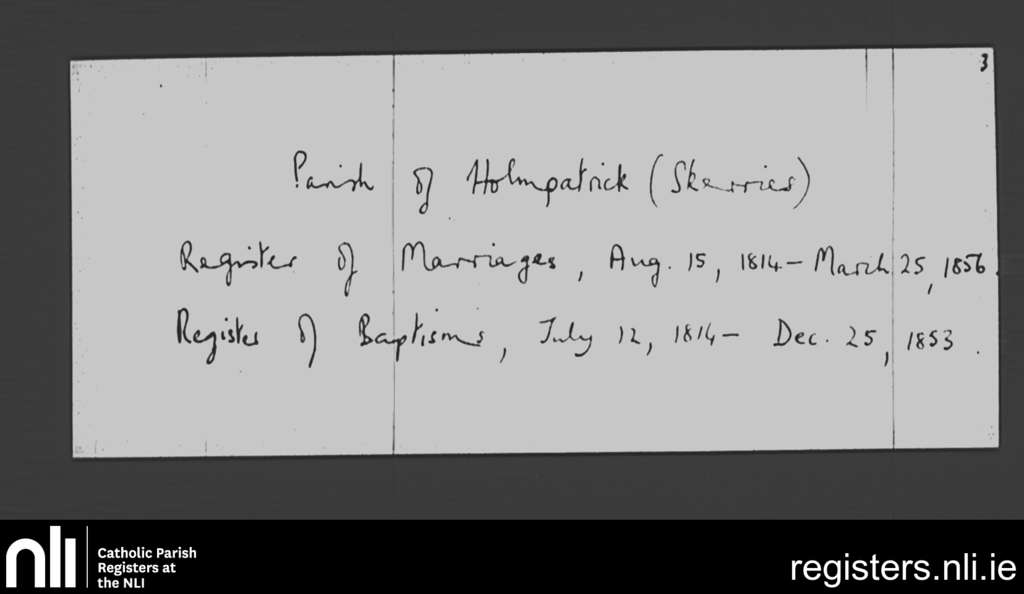 3
Parish of Holmpatrick (Skerries)
Register of Marriages, Aug. 15, 1814 – March 25, 1856.
Register of Baptisms, July 12, 1814 – Dec. 25, 1853.
nli
Catholic Parish
Registers at
the NLI
registers.nli.ie